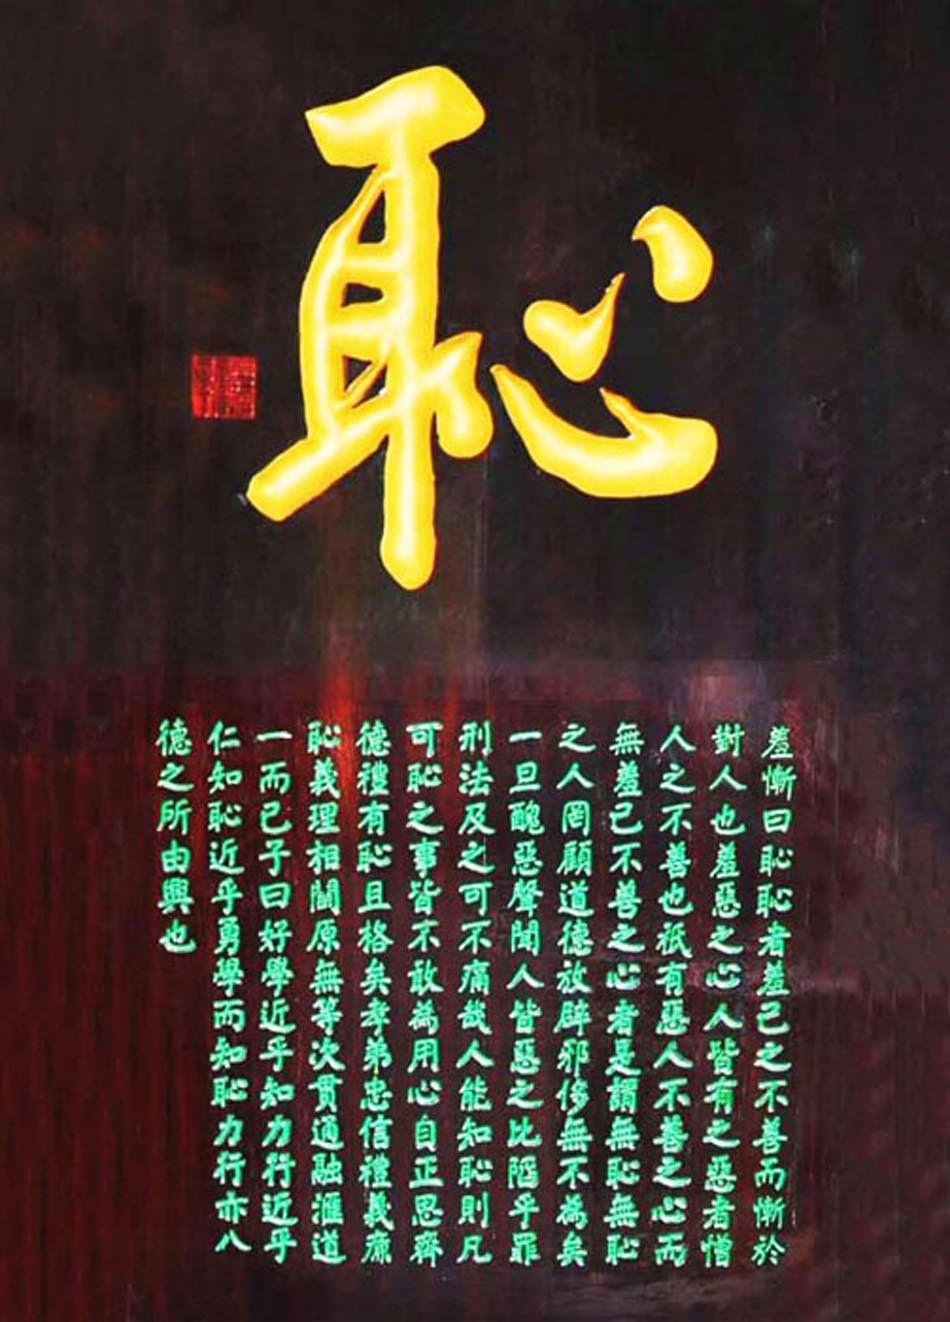 恥
羞慚曰恥恥者羞己之不善而慚於
對人也羞惡之心人皆有之惡者憎
人之不善也祇有惡人不善之心而
無羞己不善之心者是謂無恥無恥
之人罔顧道德放辟邪侈無不為矣
一旦醜惡聲聞人皆惡之比陷乎罪
刑法及之可不痛哉人能知恥則凡
可恥之事皆不敢為用心自正思齊
德禮有恥且格矣孝弟忠信禮義廉
恥義理相關原無等次貫通融滙道
一而已子曰好學近乎知力行近乎
仁知恥近乎勇學而知恥力行亦八
德之所由興也